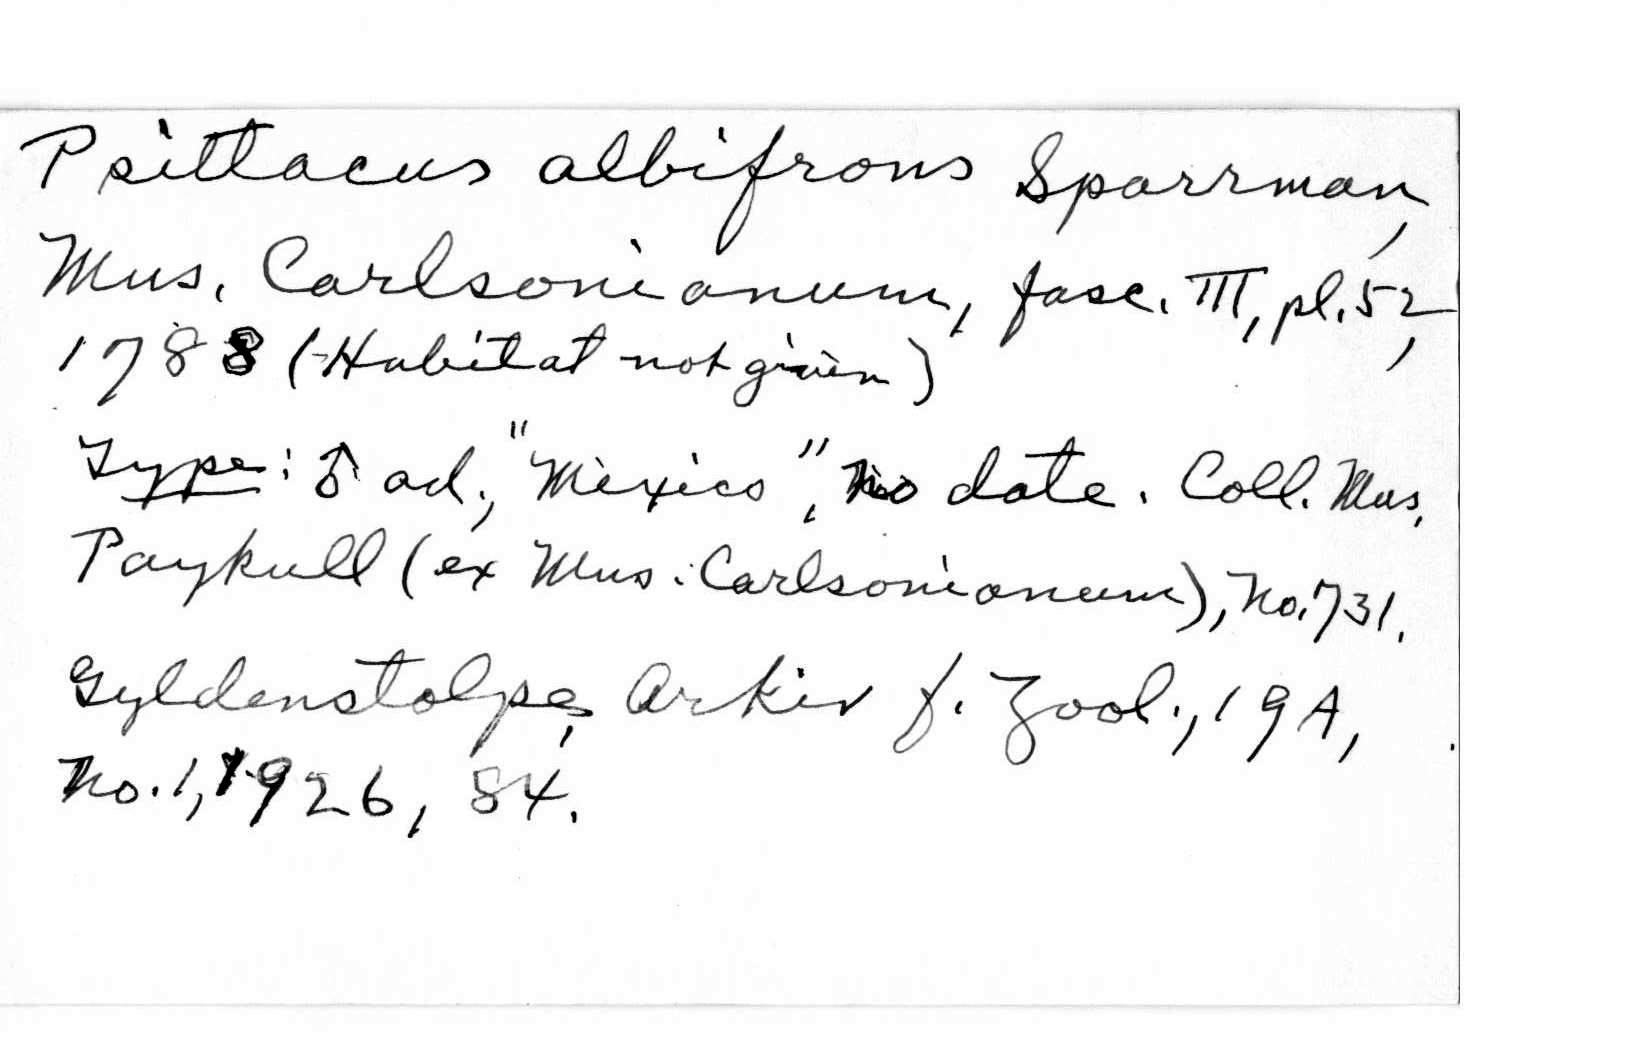 Psittacus albifrons Sparrman,
Mus. Carlsonianum, fasc. III, pl. 52,
1788 (Habitat not given)
Type: ♂ ad., "Mexico", no date. Coll. Mus.
Paykull (ex Mus. Carlsonianum), No. 731.
Gyldenstolpe, Arkiv f. Zool., 19A,
No. 1, 1926, 84.